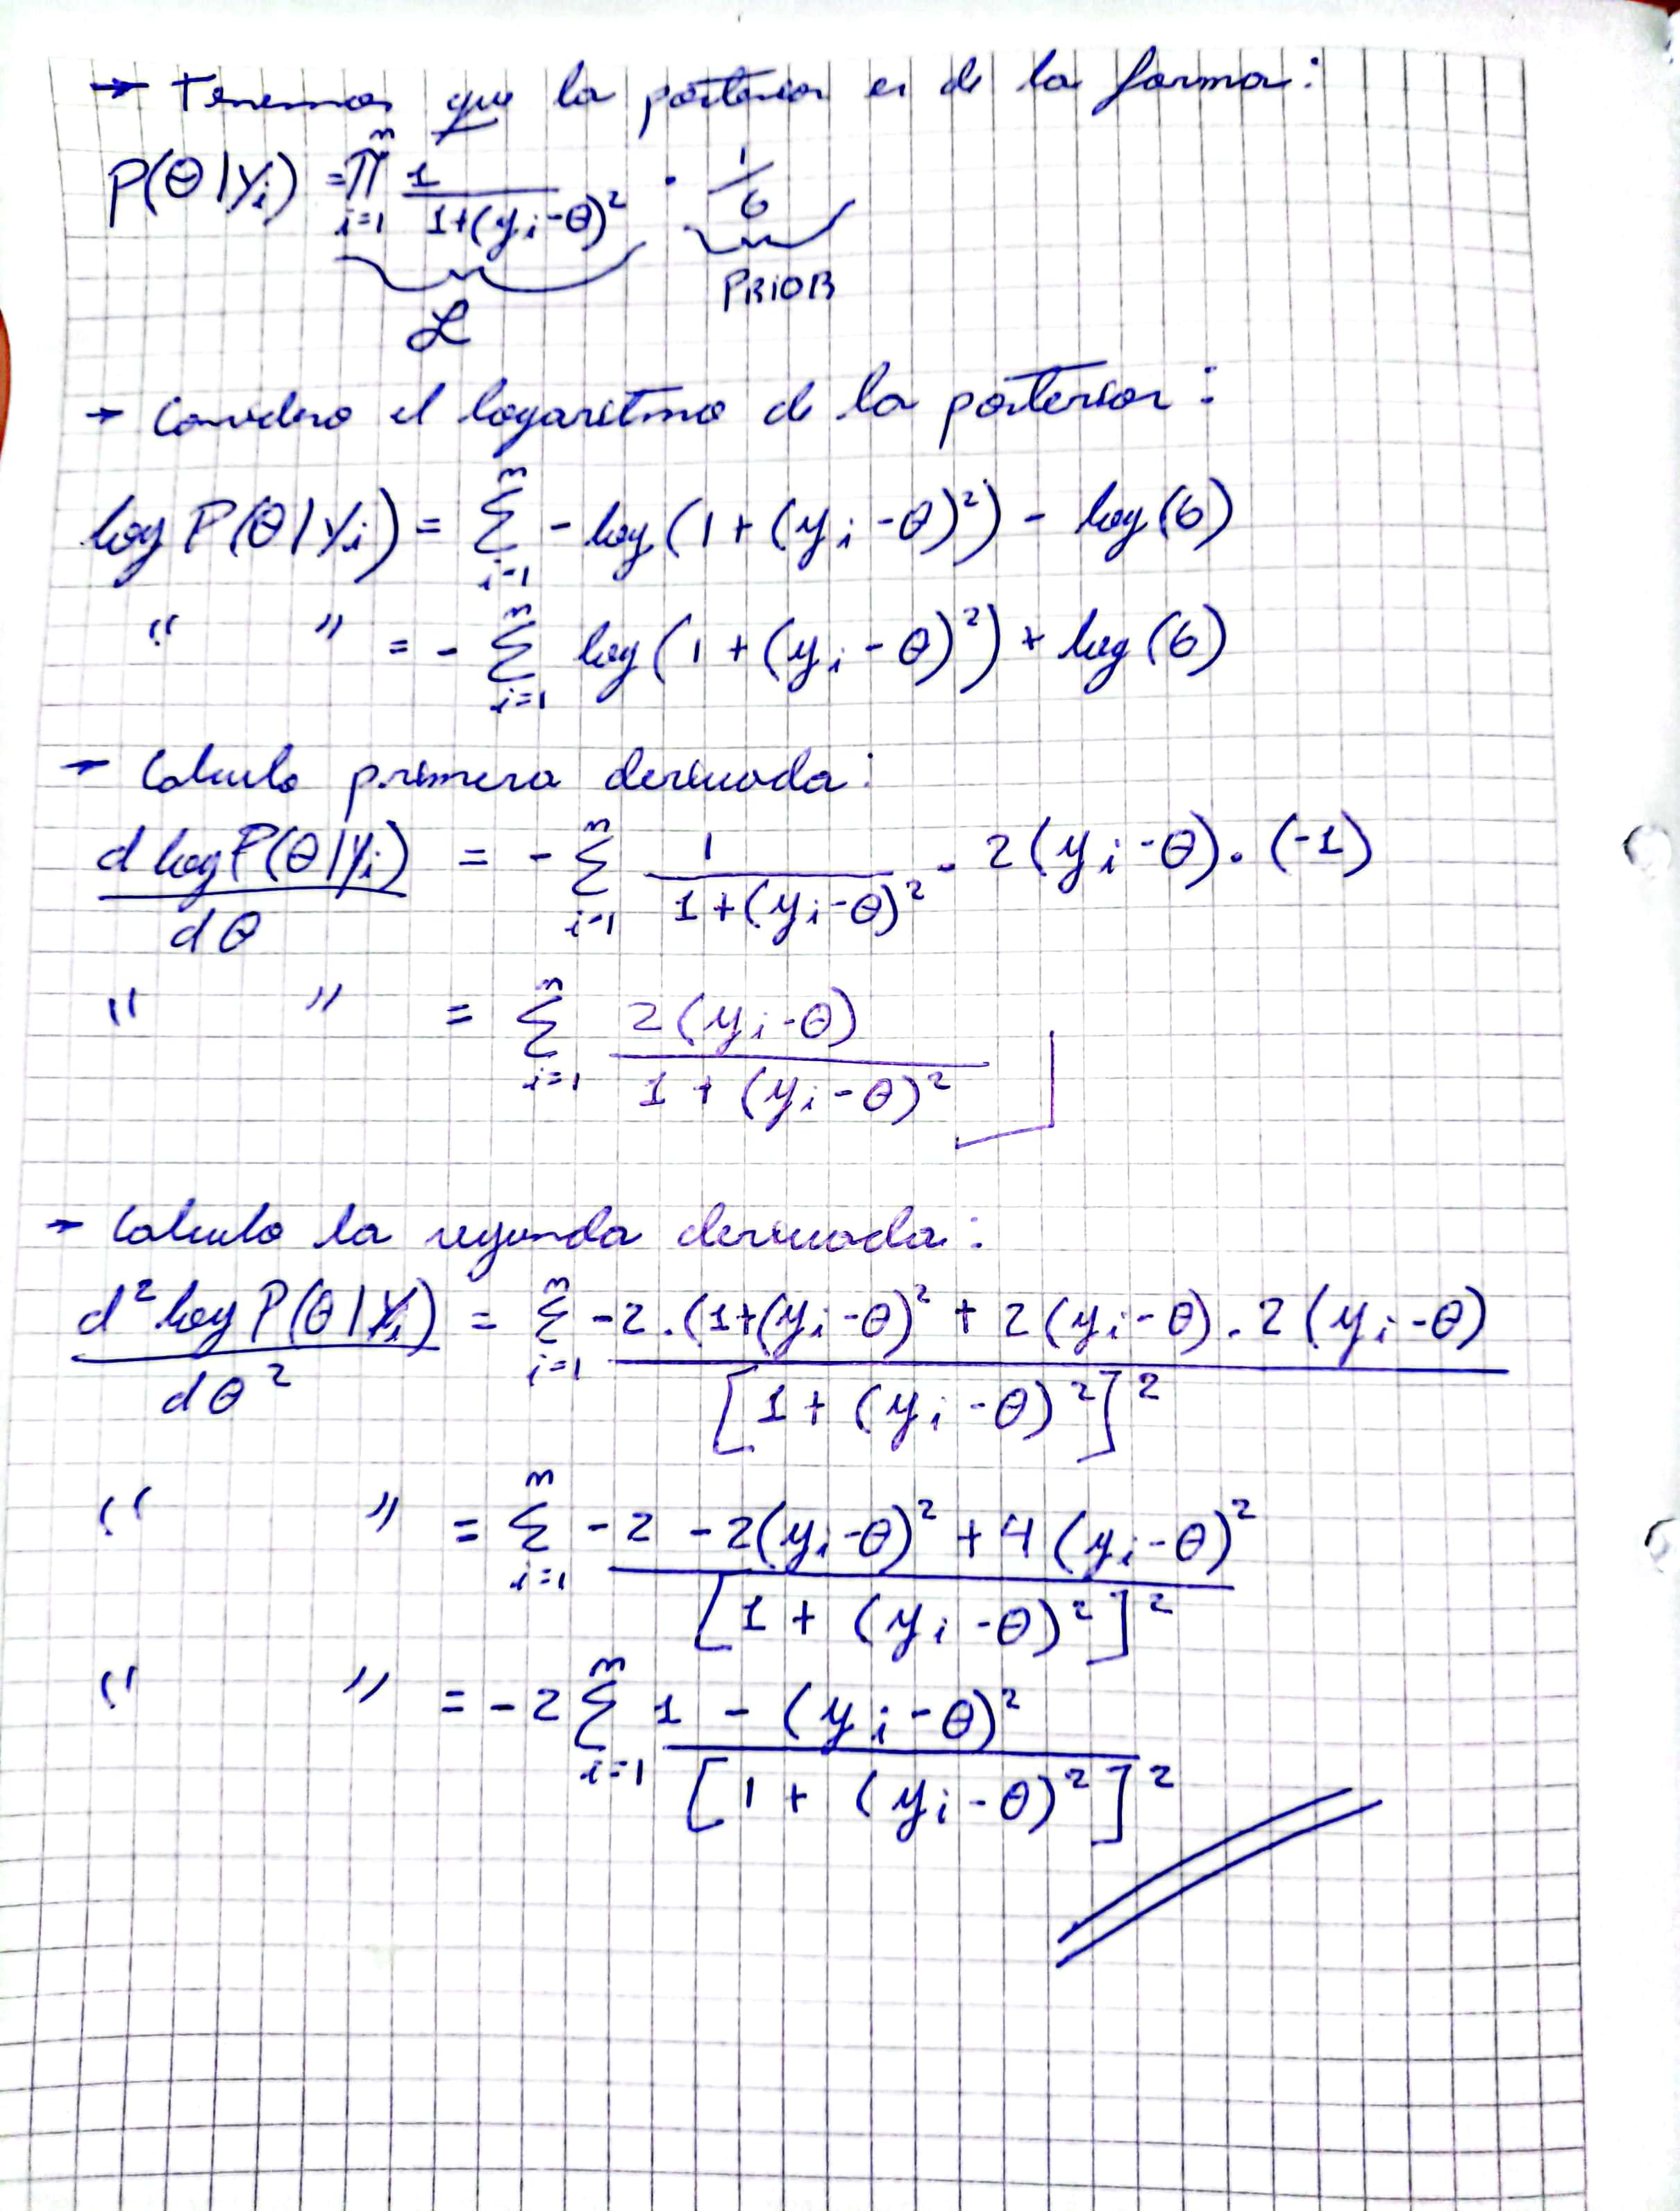 → Tenemos que la posterior es de la forma:
P(θ|Yi) = ∏_{i=1}^{n} 1/(1+(yi-θ)²) · 1/6
L PRIOR
→ Considero el logaritmo de la posterior:
log P(θ|Yi) = ∑_{i=1}^{n} - log(1+(yi-θ)²) - log(6)
" " = - ∑_{i=1}^{n} log(1+(yi-θ)²) + log(6)
→ Calculo primera derivada:
d log P(θ|Yi)/dθ = - ∑_{i=1}^{n} 1/(1+(yi-θ)²) · 2(yi-θ) · (-1)
" " = ∑_{i=1}^{n} 2(yi-θ)/(1+(yi-θ)²)
→ Calculo la segunda derivada:
d² log P(θ|Yi)/dθ² = ∑_{i=1}^{n} -2·(1+(yi-θ)² + 2(yi-θ)·2(yi-θ)/[1+(yi-θ)²]²
" " = ∑_{i=1}^{n} -2 -2(yi-θ)² + 4(yi-θ)²/[1+(yi-θ)²]²
" " = -2 ∑_{i=1}^{n} 1 - (yi-θ)²/[1+(yi-θ)²]²